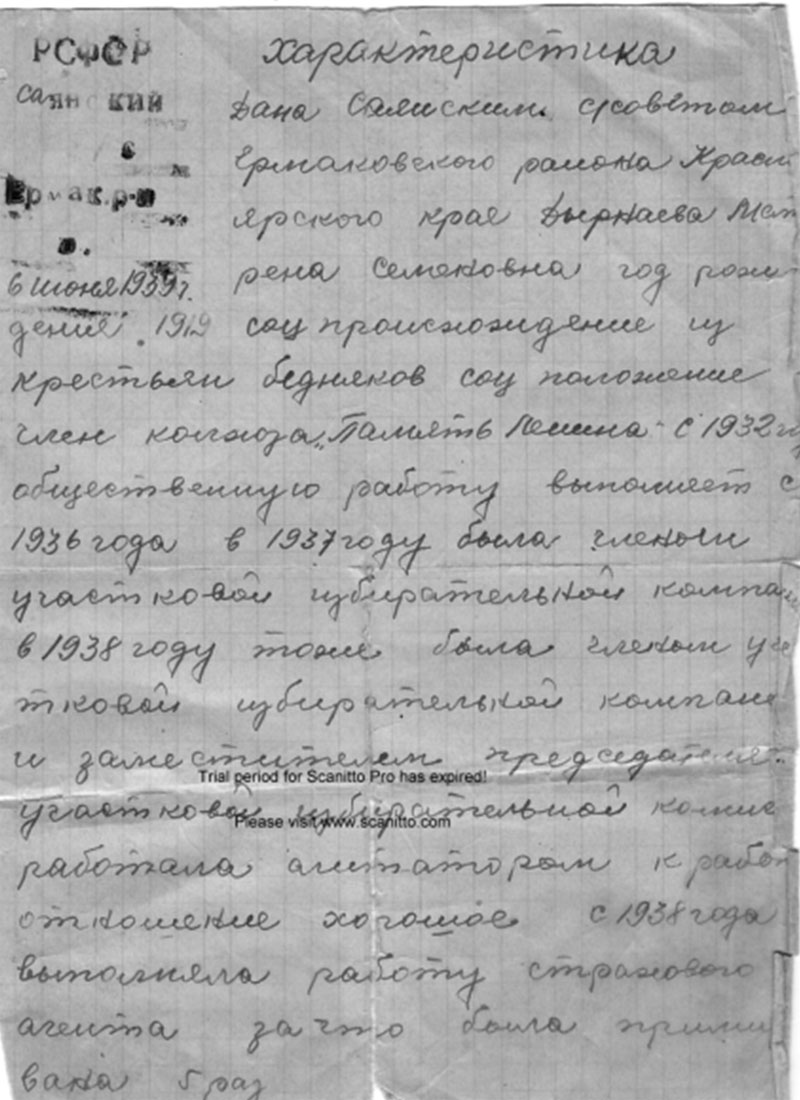 РСФСР
Саянский
с
Ермак. р-н
6 июня 1939 г.
Характеристика
Дана Саянским с/советом
Ермаковского района Красн
ярского края Дырнаева Мат
рена Семеновна год рож
дения 1919 соц происхождение из
крестьян бедняков соц положение
член колхоза „Память Ленина" с 1932 г
общественную работу выполняет с
1936 года в 1937 году была членом
участковой избирательной компан
в 1938 году тоже была членом уча
тковой избирательной компани
и заместителем председателя
участковой избирательной комис
работала агитатором к работ
отношение хорошое с 1938 года
выполняла работу страхового
агента за что была преми
вана 5 раз
Trial period for Scanitto Pro has expired!
Please visit www.scanitto.com